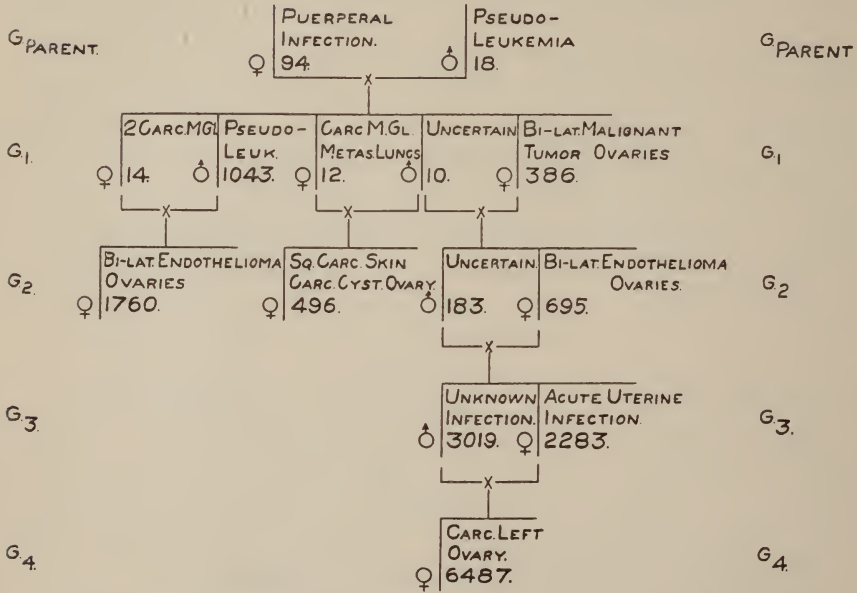 PUERPERAL INFECTION.
♀ 94.
PSEUDO-LEUKEMIA
♂ 18.
G PARENT.
G PARENT
x
G.1.
2 CARC. M.GL.
♀ 14.
PSEUDO-LEUK.
♂ 1043.
CARC. M.GL.
METAS. LUNGS
♀ 12.
UNCERTAIN
♂ 10.
BI-LAT. MALIGNANT
TUMOR OVARIES
♀ 386.
G.1
x
x
x
G.2.
BI-LAT. ENDOTHELIOMA
OVARIES
♀ 1760.
SQ. CARC. SKIN
CARC. CYST. OVARY.
♀ 496.
UNCERTAIN.
♂ 183.
BI-LAT. ENDOTHELIOMA
OVARIES.
♀ 695.
G.2
x
G.3.
UNKNOWN
INFECTION.
♂ 3019.
ACUTE UTERINE
INFECTION.
♀ 2283.
G.3.
x
G.4.
CARC. LEFT
OVARY.
♀ 6487.
G.4.